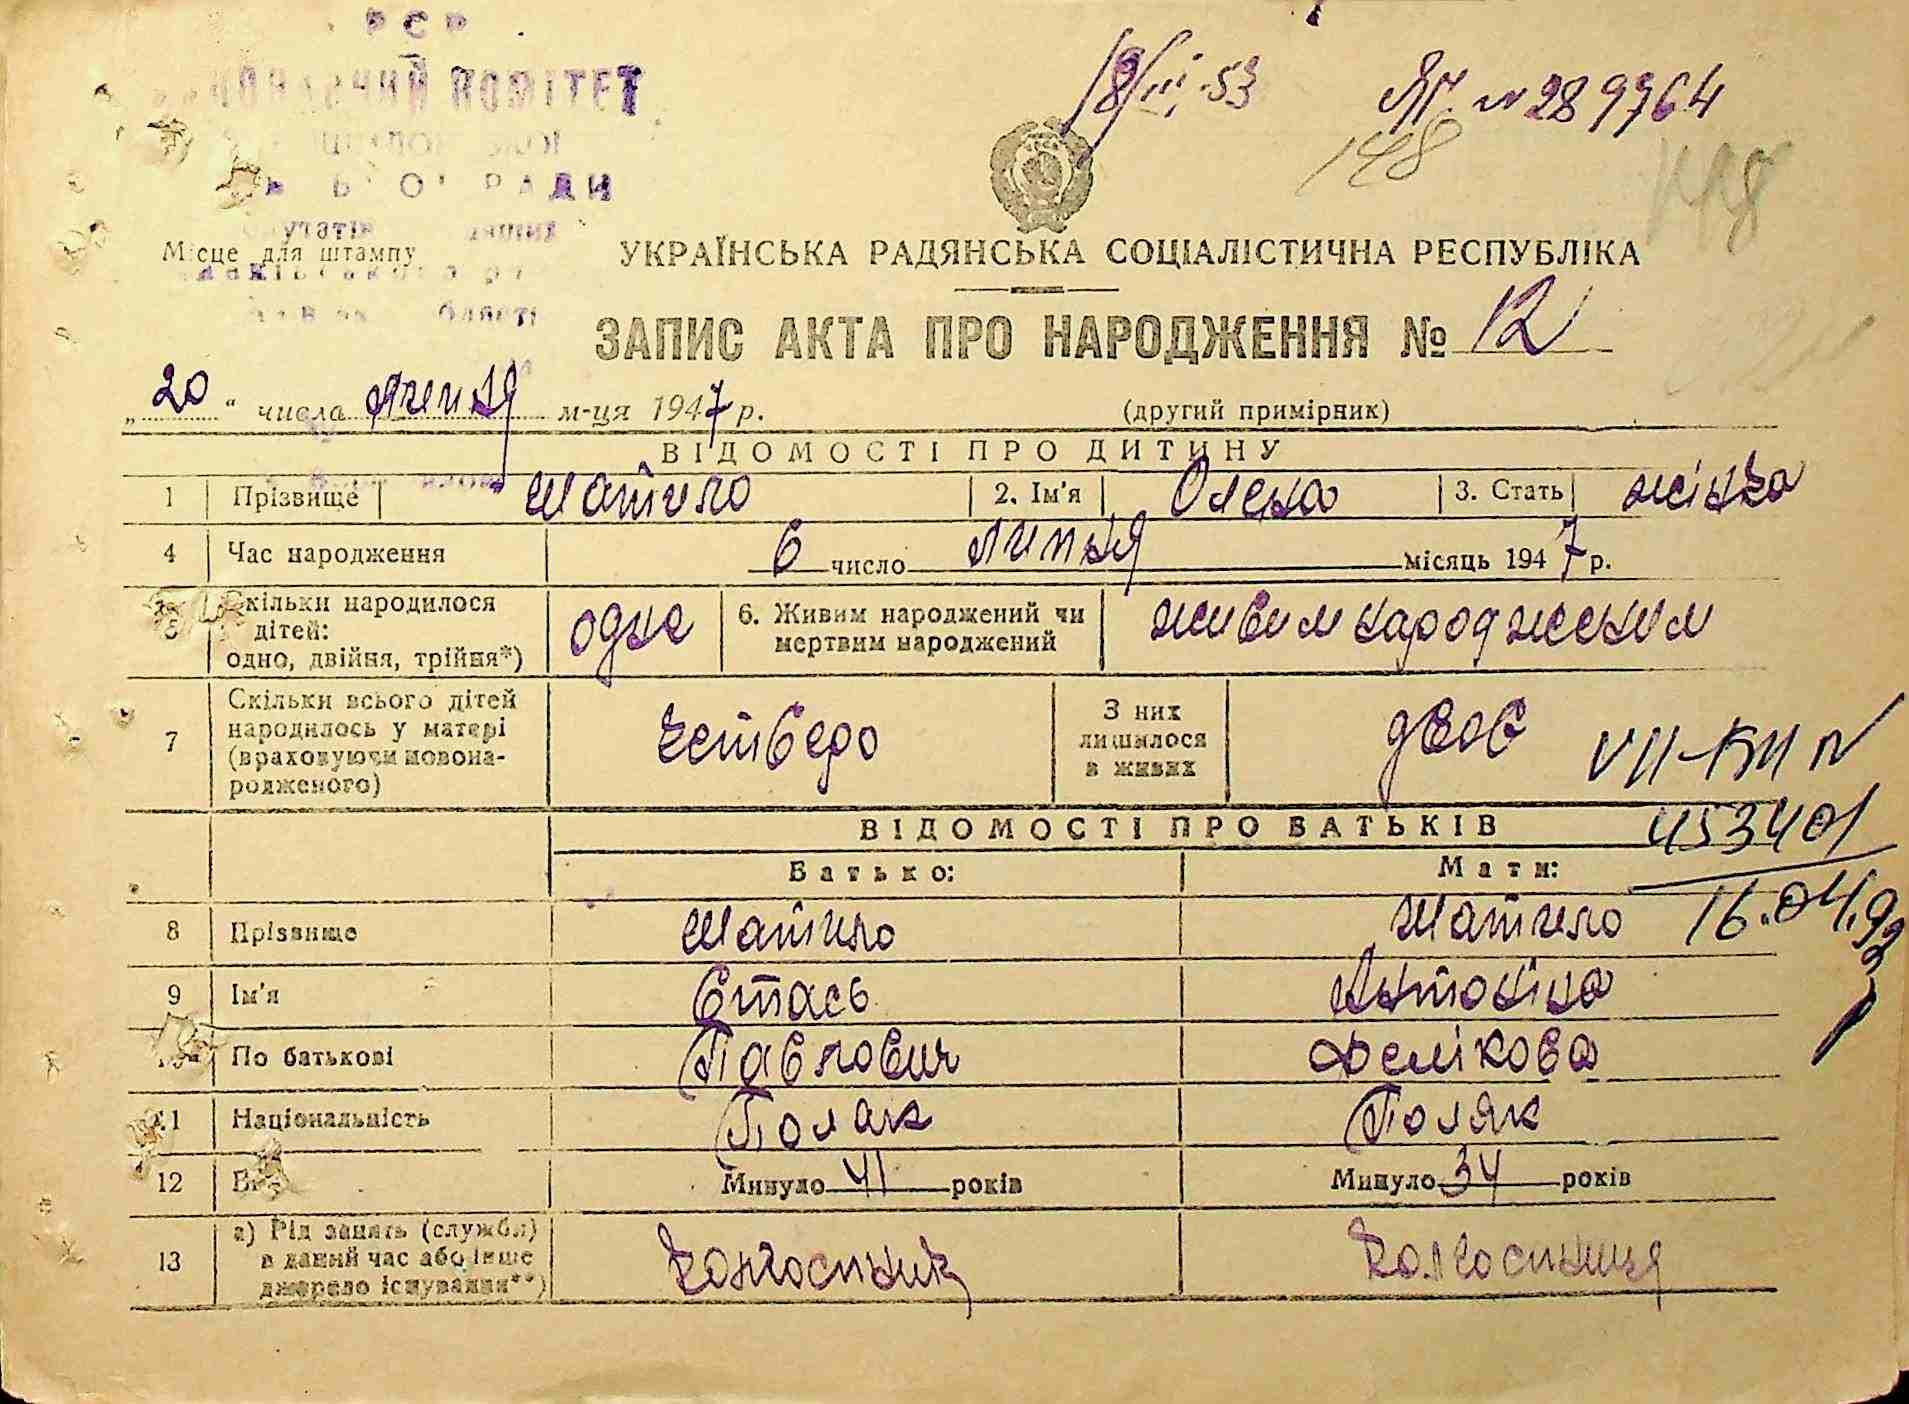 РСР
КОМІТЕТ
РАДИ
18/III.53
ЯГ. № 289764
148
148
Місце для штампу
УКРАЇНСЬКА РАДЯНСЬКА СОЦІАЛІСТИЧНА РЕСПУБЛІКА
ЗАПИС АКТА ПРО НАРОДЖЕННЯ № 12
„20“ числа липня м-ця 1947 р.
(другий примірник)
ВІДОМОСТІ ПРО ДИТИНУ
1 Прізвище Шатило 2. Ім'я Олена 3. Стать жінка
4 Час народження 6 число липня місяць 1947 р.
5 Скільки народилося дітей: одно, двійня, трійня*) одна 6. Живим народжений чи мертвим народжений живим народженим
7 Скільки всього дітей народилось у матері (враховуючи новонародженого) четверо З них лишилося в живих двоє
VII-БП №
453401
16.04.92
ВІДОМОСТІ ПРО БАТЬКІВ
Батько: Мати:
8 Прізвище Шатило Шатило
9 Ім'я Стась Антоніна
По батькові Павлович Фелікова
11 Національність Поляк Поляк
12 Минуло 41 років Минуло 34 років
13 а) Рід занять (служби) в даний час або інше джерело існування**) Колгоспник Колгоспниця